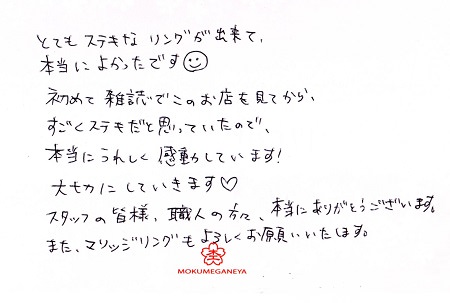 とても ステキな リングが出来て、
本当に よかったです☺
初めて 雑誌で このお店を 見てから、
すごく ステキだと 思っていたので、
本当に うれしく 感動しています!
大切に していきます♡
スタッフの 皆様、職人の 方々、本当に ありがとうございます。
また、マリッジリングも よろしく お願いいたします。
杢
MOKUMEGANEYA